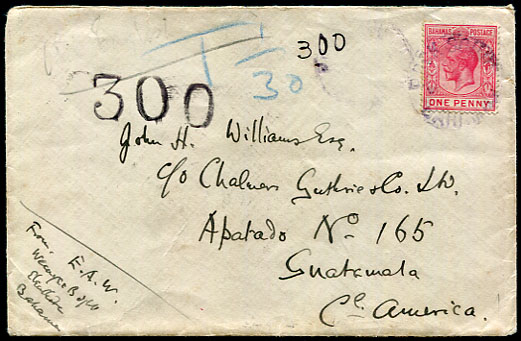 T 1/30
300
300
BAHAMAS POSTAGE
ONE PENNY
John H. Williams Esq.
c/o Chalmers Guthrie & Co. Ltd.
Apatado No 165
Guatamala
Cl. America.
From. E.A.W.
Bahamas